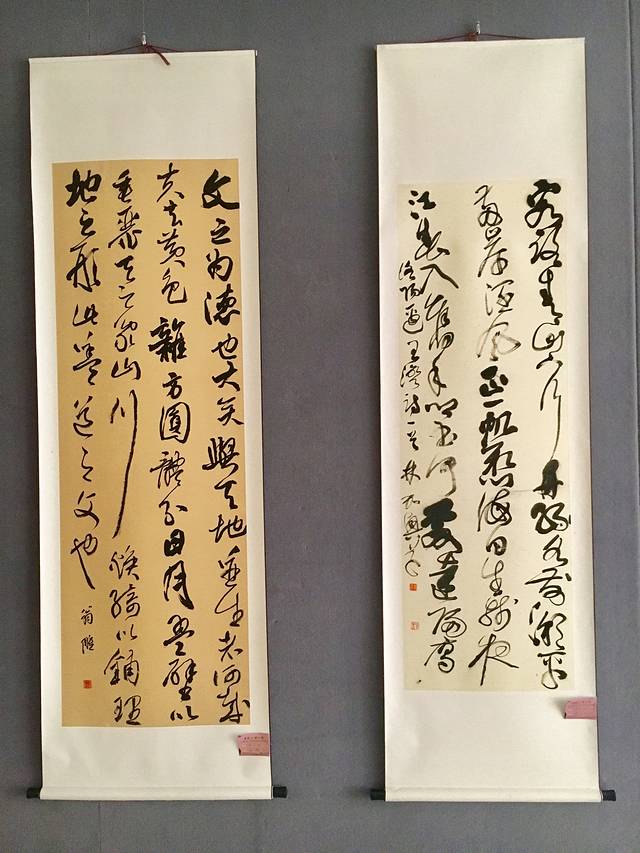 客路青山下行舟綠水前潮平
兩岸闊風正一帆懸海日生殘夜
江春入舊年鄉書何處達歸雁
洛陽邊王灣詩一首林
文之為德也大矣與天地並生者何哉
夫玄黃色雜方圓體分日月疊璧以
垂麗天之象山川煥綺以鋪理
地之形此蓋道之文也
翁